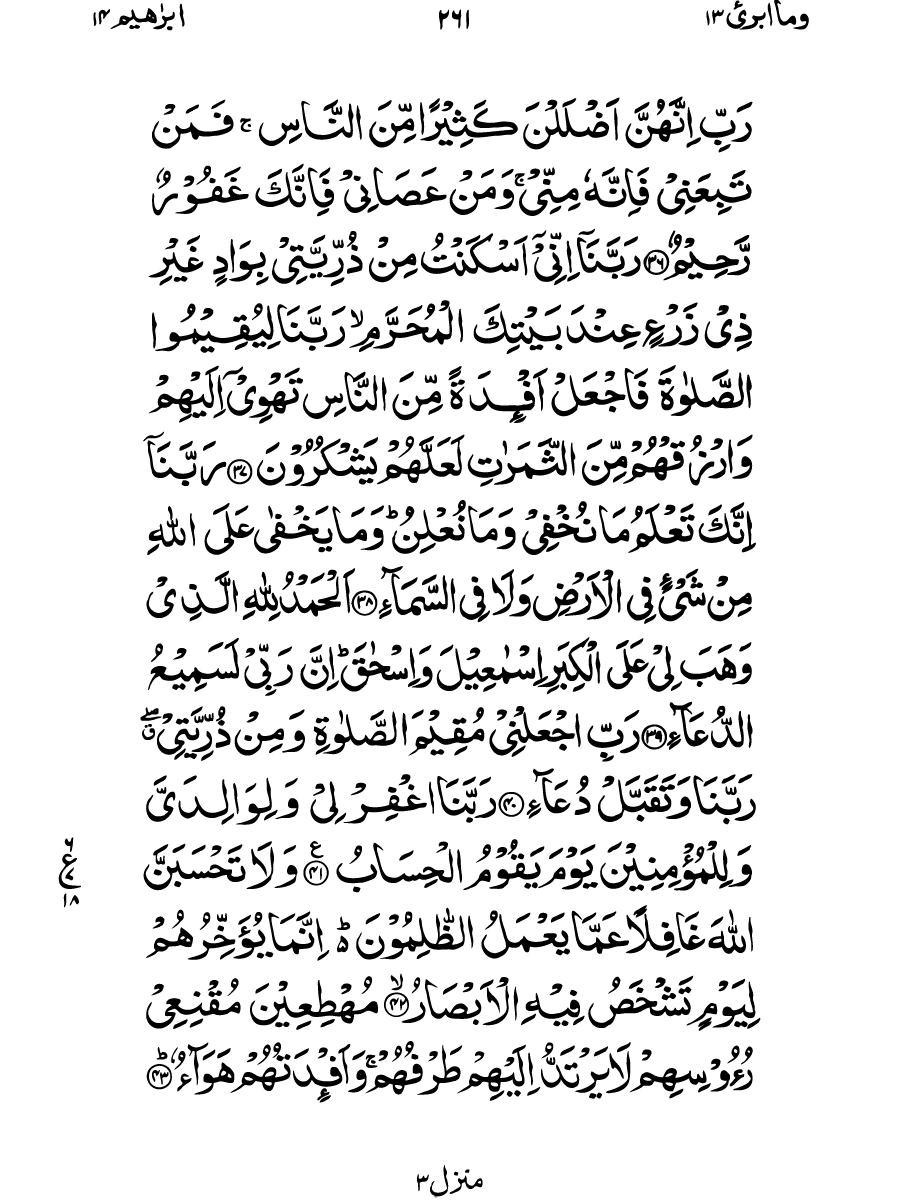 وماابرئ ١٣ ٢٦١ ابرٰهيم ١٤
رَبِّ اِنَّهُنَّ اَضْلَلْنَ كَثِيْرًا مِّنَ النَّاسِ ۚ فَمَنْ
تَبِعَنِيْ فَاِنَّهٗ مِنِّيْ ۚ وَمَنْ عَصَانِيْ فَاِنَّكَ غَفُوْرٌ
رَّحِيْمٌ ﴿٣٦﴾ رَبَّنَاۤ اِنِّيْۤ اَسْكَنْتُ مِنْ ذُرِّيَّتِيْ بِوَادٍ غَيْرِ
ذِيْ زَرْعٍ عِنْدَ بَيْتِكَ الْمُحَرَّمِ ۙ رَبَّنَا لِيُقِيْمُوا
الصَّلٰوةَ فَاجْعَلْ اَفْـِٕدَةً مِّنَ النَّاسِ تَهْوِيْۤ اِلَيْهِمْ
وَارْزُقْهُمْ مِّنَ الثَّمَرٰتِ لَعَلَّهُمْ يَشْكُرُوْنَ ﴿٣٧﴾ رَبَّنَاۤ
اِنَّكَ تَعْلَمُ مَا نُخْفِيْ وَمَا نُعْلِنُ ؕ وَمَا يَخْفٰى عَلَى اللّٰهِ
مِنْ شَيْءٍ فِي الْاَرْضِ وَلَا فِي السَّمَآءِ ﴿٣٨﴾ اَلْحَمْدُ لِلّٰهِ الَّذِيْ
وَهَبَ لِيْ عَلَى الْكِبَرِ اِسْمٰعِيْلَ وَاِسْحٰقَ ؕ اِنَّ رَبِّيْ لَسَمِيْعُ
الدُّعَآءِ ﴿٣٩﴾ رَبِّ اجْعَلْنِيْ مُقِيْمَ الصَّلٰوةِ وَمِنْ ذُرِّيَّتِيْ ۖ ق
رَبَّنَا وَتَقَبَّلْ دُعَآءِ ﴿٤٠﴾ رَبَّنَا اغْفِرْ لِيْ وَلِوَالِدَيَّ
وَلِلْمُؤْمِنِيْنَ يَوْمَ يَقُوْمُ الْحِسَابُ ﴿٤١﴾ ع وَلَا تَحْسَبَنَّ
٦ ع ٧ ١٨
اللّٰهَ غَافِلًا عَمَّا يَعْمَلُ الظّٰلِمُوْنَ ؕ ٥ اِنَّمَا يُؤَخِّرُهُمْ
لِيَوْمٍ تَشْخَصُ فِيْهِ الْاَبْصَارُ ۙ ﴿٤٢﴾ مُهْطِعِيْنَ مُقْنِعِيْ
رُءُوْسِهِمْ لَا يَرْتَدُّ اِلَيْهِمْ طَرْفُهُمْ ۚ وَاَفْـِٕدَتُهُمْ هَوَآءٌ ؕ ﴿٤٣﴾
منزل ٣